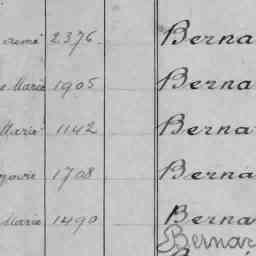 2376. Berna
e Marie 1905 Berna
Marie 1142 Berna
1708 Berna
Marie 1490 Berna
Bernar